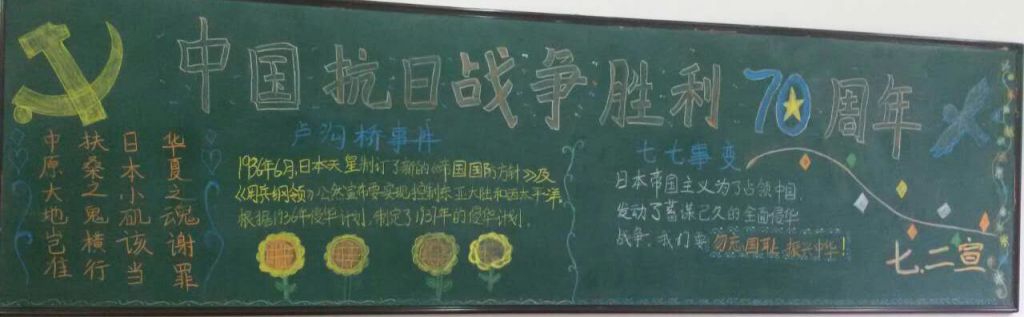 中国抗日战争胜利70周年
中原大地岂准
扶桑之鬼横行
日本小矶该当
华夏之魂谢罪
卢沟桥事件
1936年6月,日本天皇制订了新的《帝国国防方针》及
《用兵纲领》公然宣布要实现控制东亚大陆和西太平洋,
根据1936年侵华计划,制定了1937年的侵华计划.
七七事变
日本帝国主义为了占领中国,
发动了蓄谋已久的全面侵华
战争.我们要勿忘国耻 振兴中华!
七.二宣